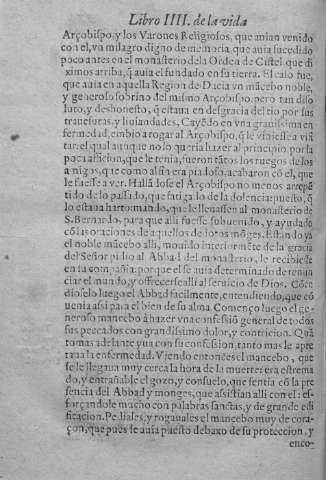 Libro IIII. de la vida
Arçobispo, y los Varones Religiosos, que auian venido
con el, vn milagro digno de memoria, que auia sucedido
poco antes en el monasterio de la Orden de Cistel que di
ximos arriba, q̃ auia el fundado en su tierra. El caso fue,
que auia en aquella Region de Dacia vn mãcebo noble,
y generoso sobrino del mismo Arçobispo, pero tan diso
luto, y deshonesto, q̃ estaua en desgracia del tio por sus
trauesuras, y liuiandades, Cayẽdo en vna grauissima en
fermedad, embio a rogar al Arçobispo, q̃ le viniesse a visi
tar: el qual aunque no lo queria hazer al principio, por la
poca aficion, que le tenia, fueron tãtos los ruegos de los
amigos, que como al fin era piadoso, acabaron cõ el, que
le fuesse a ver. Hallã dose el Arçobispo no menos arrepẽ
tido de lo passado, que fatigado de la dolencia: puesto, q̃
lo estaua harto: mando, que le lleuassen al monasterio de
S. Bernardo, para que alli fuesse sobuenido, y ayudado
cõ las oraciones de aquellos deuotos mõges. Estando ya
el noble mãcebo alli, mouido interiormẽte de la gracia
del Señor pidio al Abbad del monasterio, le recibiesse
en su compañia: porque el se auia determinado de renun
ciar el mundo, y offrecerse alli al seruicio de Dios. Cõce
dioselo luego el Abbad facilmente, entendiendo, que cõ
uenia assi para el bien de su alma. Començo luego el ge-
neroso mancebo à hazer vna confessiõ general de todos
sus peccados con grandissimo dolor, y contricion. Quã
to mas adelante yua con su confession, tanto mas le apre
taua la enfermedad. Viendo entonces el mancebo, que
se le llegaua muy cerca la hora de la muerte: era estrema
do, y entrañable el gozo, y consuelo, que sentia cõ la pre
sencia del Abbad y monges, que assistian alli con el: es-
forçandole mucho con palabras sanctas, y de grande edi
ficacion. Pediales, y rogauales el mancebo muy de cora-
çon, que pues se auia puesto debaxo de su proteccion, y
enco-